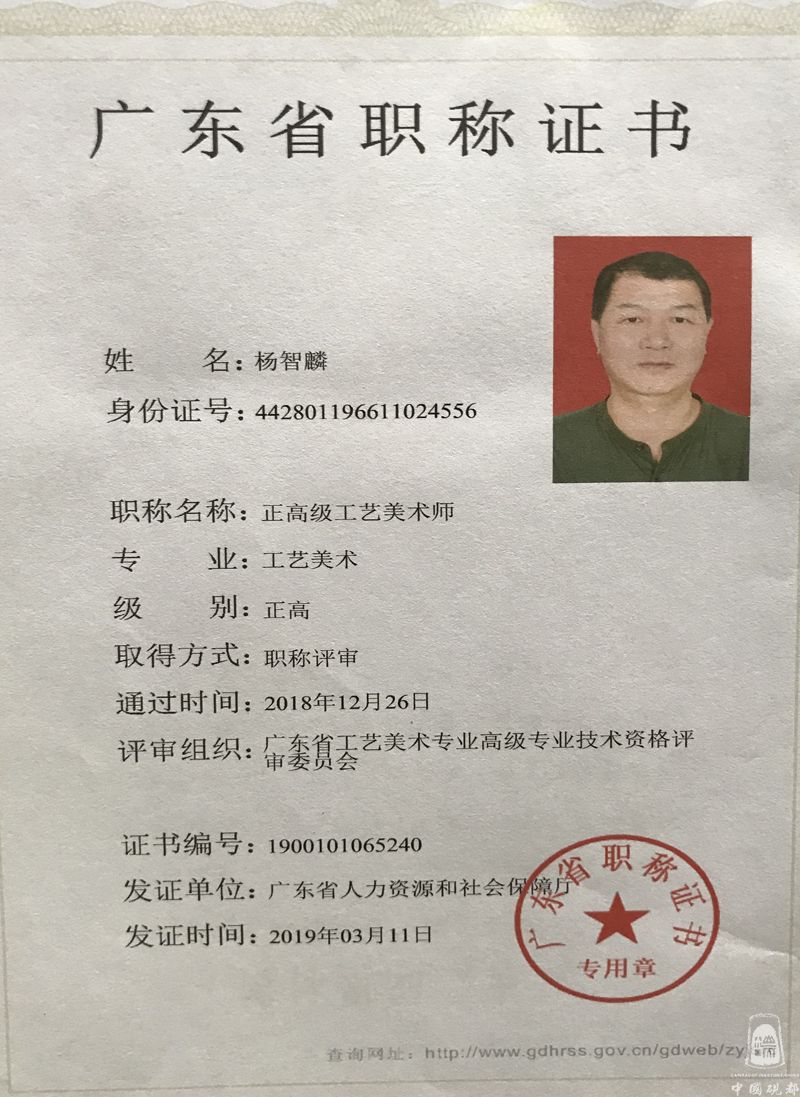 广东省职称证书
姓 名：杨智麟
身份证号：442801196611024556
职称名称：正高级工艺美术师
专 业：工艺美术
级 别：正高
取得方式：职称评审
通过时间：2018年12月26日
评审组织：广东省工艺美术专业高级专业技术资格评
审委员会
证书编号：1900101065240
发证单位：广东省人力资源和社会保障厅
发证时间：2019年03月11日
广东省职称证书
专用章
查询网址：http://www.gdhrss.gov.cn/gdweb/zy
中國硯都